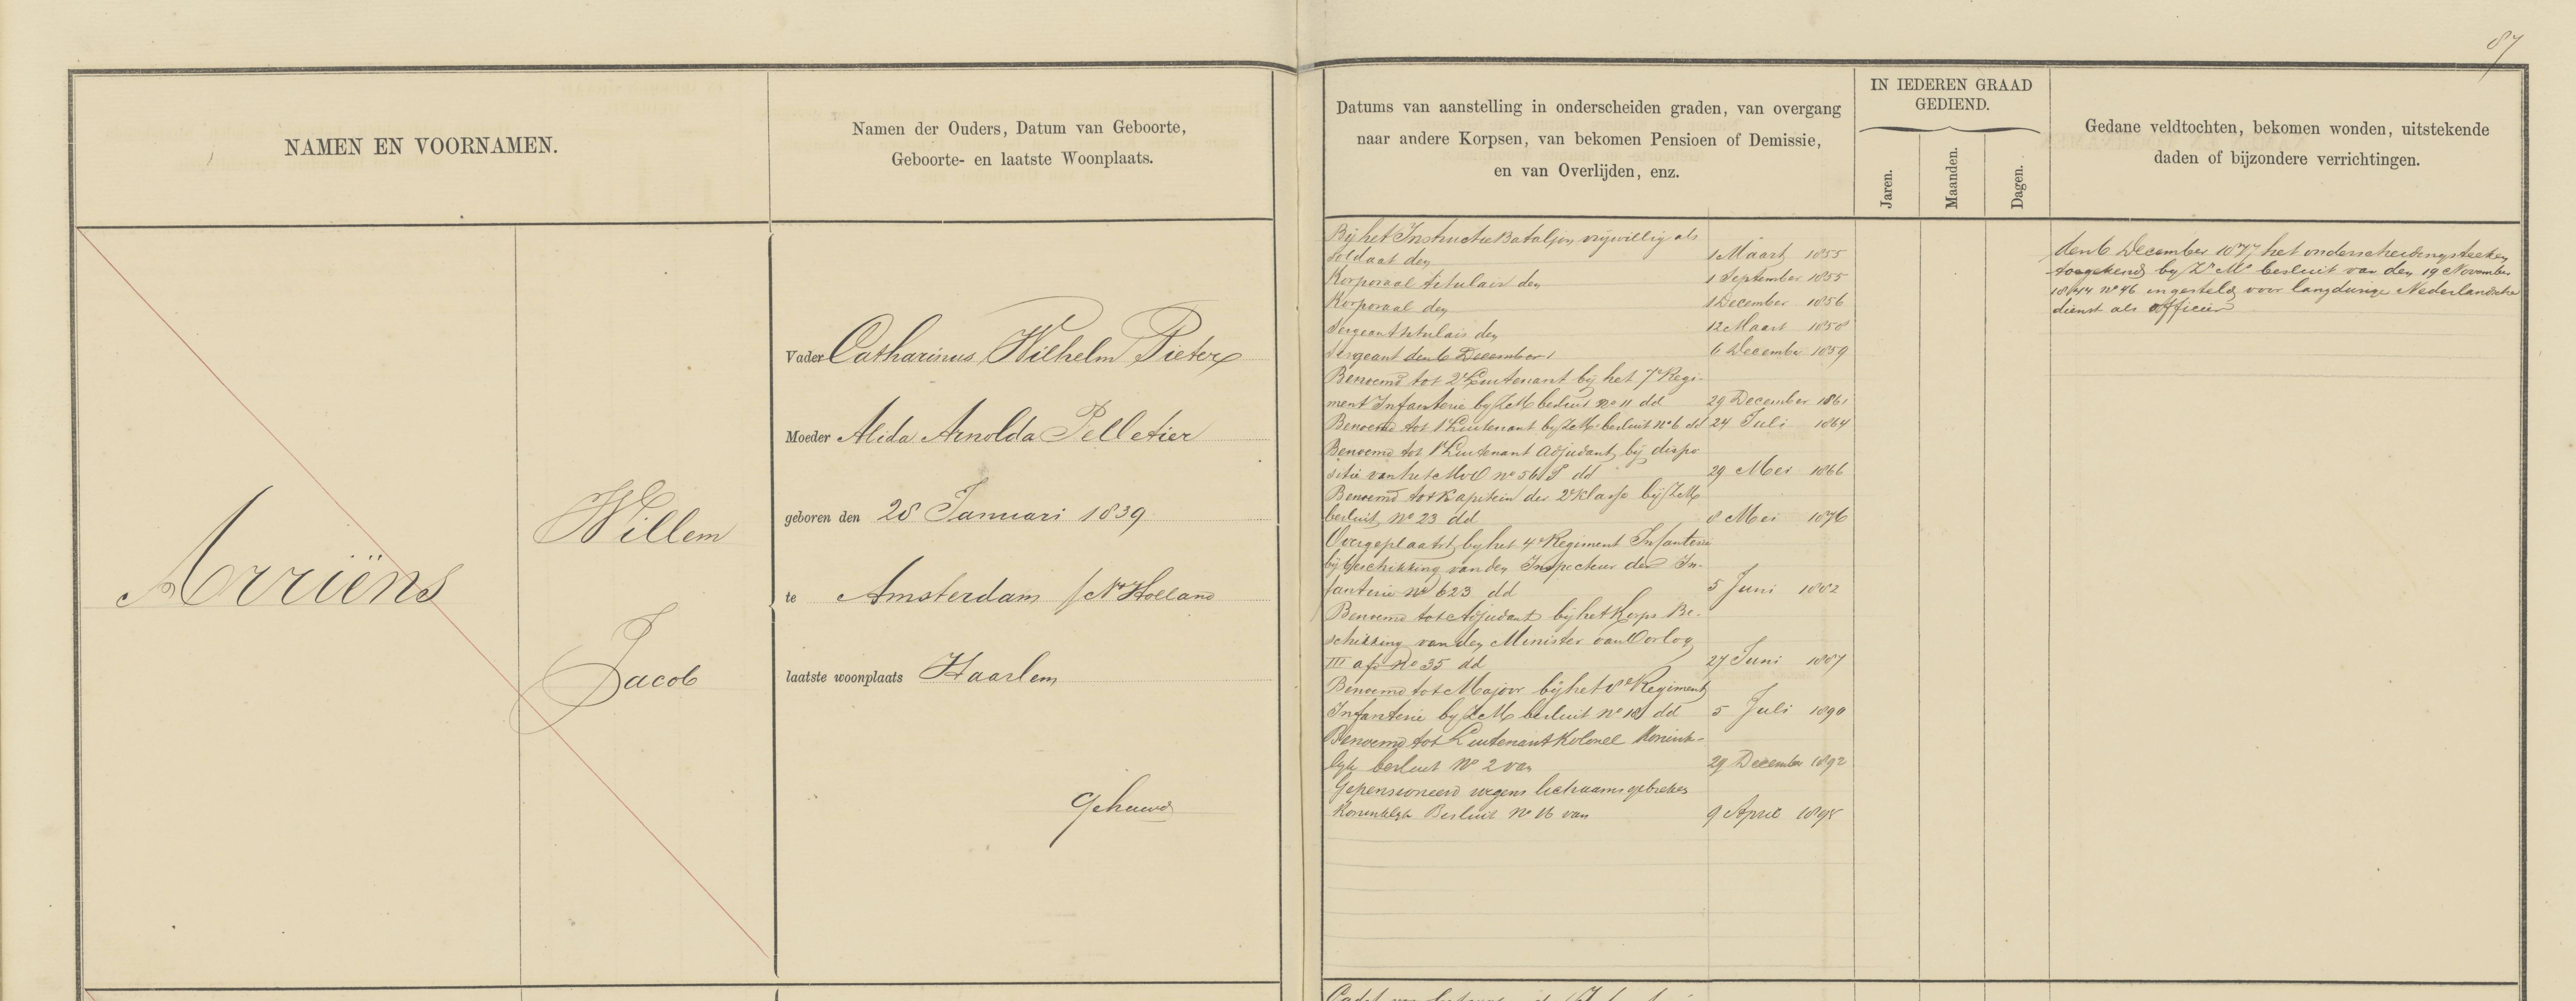 87
NAMEN EN VOORNAMEN.
Namen der Ouders, Datum van Geboorte,
Geboorte- en laatste Woonplaats.
Arriëns
Willem
Jacob
Vader Catharinus Wilhelm Pieter
Moeder Alida Arnolda Pelletier
geboren den 28 Januari 1839
te Amsterdam / N Holland
laatste woonplaats Haarlem
Gehuwd
Datums van aanstelling in onderscheiden graden, van overgang
naar andere Korpsen, van bekomen Pensioen of Demissie,
en van Overlijden, enz.
IN IEDEREN GRAAD
GEDIEND.
Jaren.
Maanden.
Dagen.
Gedane veldtochten, bekomen wonden, uitstekende
daden of bijzondere verrichtingen.
Bij het Instructie Bataljon vrijwillig als
soldaat den 1 Maart 1855
Korporaal titulair den 1 September 1855
Korporaal den 1 December 1856
Sergeant titulair den 12 Maart 1858
Sergeant den 6 December 6 December 1859
Benoemd tot 2e Luitenant bij het 7e Regi-
ment Infanterie bij ZM besluit no 11 dd 29 December 1861
Benoemd tot 1e Luitenant bij ZM besluit no 6 dd 24 Juli 1864
Benoemd tot 1e Luitenant Adjudant bij dispo
sitie van het MvO no 56 dd 29 Mei 1866
Benoemd tot Kapitein der 2e klasse bij ZM
besluit no 23 dd 8 Mei 1876
Overgeplaatst bij het 4e Regiment Infanterie
bij beschikking van den Inspecteur der In-
fanterie no 623 dd 5 Juni 1882
Benoemd tot Adjudant bij het Korps Be-
schikking van den Minister van Oorlog
III afd no 35 dd 27 Juni 1887
Benoemd tot Majoor bij het 8e Regiment
Infanterie bij ZM besluit no 18 dd 5 Juli 1890
Benoemd tot Luitenant Kolonel Konink-
lijk besluit No 2 van 29 December 1892
Gepensioneerd wegens lichaamsgebreken
Koninklijk Besluit No 16 van 9 April 1895
den 6 December 1877 het onderscheidingsteeken
toegekend bij Zr Ms besluit van den 19 November
1844 no 46 ingesteld voor langdurige Nederlandsche
dienst als officier